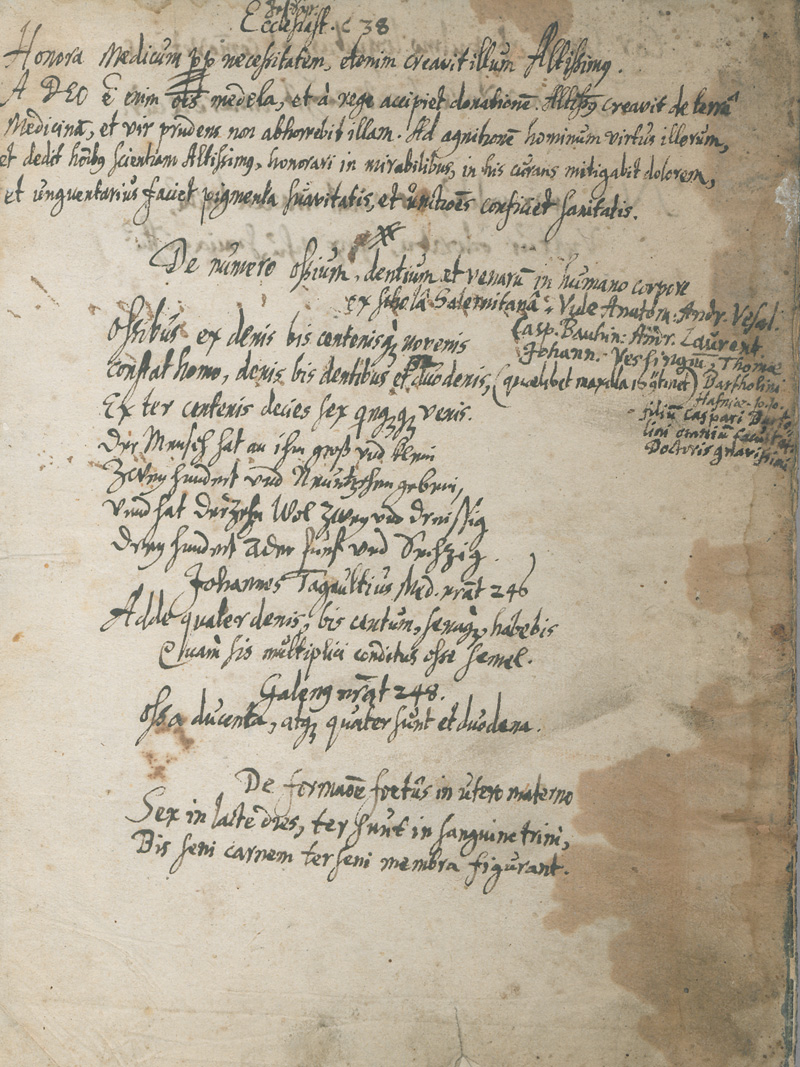 Ecclesiast. c 38
Honora Medicum pp necessitatem, etenim creavit illum Altissimq.
A DEO ē enim ois medela, et à rege accipiet donationē. Altissq creavit de terrâ
Medicinā, et vir prudens non abhorrebit illam. Ad agnitionē hominum virtus illorum,
et dedit hoībq scientiam Altissimq, honorari in mirabilibus, in his curans mitigabit dolorem,
et unguentarius faciet pigmenta suavitatis, et unctiōes conficiet sanitatis.
De numero ossium, dentium et venarū in humano corpore
ex scholâ Salernitanâ: Vide Anatom: Andr. Vesal.
Casp. Bauhin: Andr. Laurent.
Johann. Veslingiū, Thomae
Bartholini
Hafniae
filiū Caspari Barto
lini omniū facultat
Doctoris gnavissimi
Ossibus ex denis bis centenisq novenis
constat homo, denis bis dentibus et duodenis, (quaelibet maxilla 16 ɔtinet)
Ex ter centenis decies sex qnqq venis.
Der Mensch hat an ihm groß vnd klein
Zweÿ hundert vnd Neuntzehen gebein,
Vnnd hat der zehn Wol zweÿ vnd dreissig
Dreÿ hundert Ader fünf vnd Sechzig.
Johannes Tagaultius Med. nrāt 246
Adde quater denis, bis centum, senaq, habebis
Quàm sis multiplici conditus osse semel.
Galenq nrāt 248.
Ossa ducenta, atq quater sunt et duodena.
De formaōe foetûs in utero materno
Sex in lacte dies, ter sunt in sanguine trini,
Bis seni carnem ter seni membra figurant.